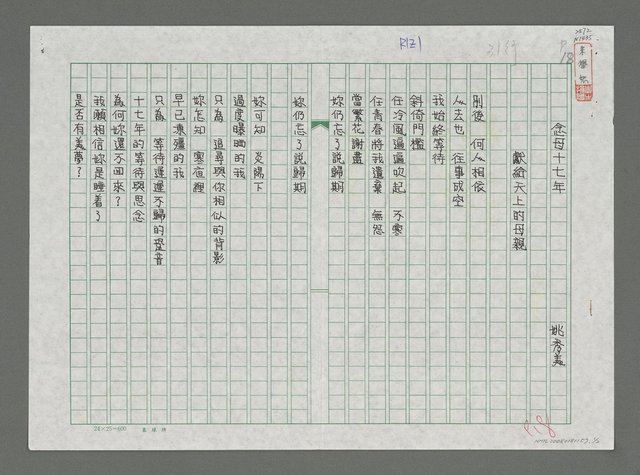 念母十七年
獻給天上的母親
姚秀美
別後　何人相依
人去也　往事成空
我始終等待
斜倚門檻
任冷風遍遍吹起　不寒
任青春將我遺棄　無怨
當繁花謝盡
妳仍忘了說歸期
妳仍忘了說歸期
妳可知　炎陽下
過度曝晒的我
只為　追尋與你相似的背影
妳怎知　寒夜裡
早已凍殭的我
只為　等待遲遲不歸的跫音
十七年的等待與思念
為何妳還不回來？
我願相信妳是睡着了
是否有美夢？
R1Z1
P18
24×25=600